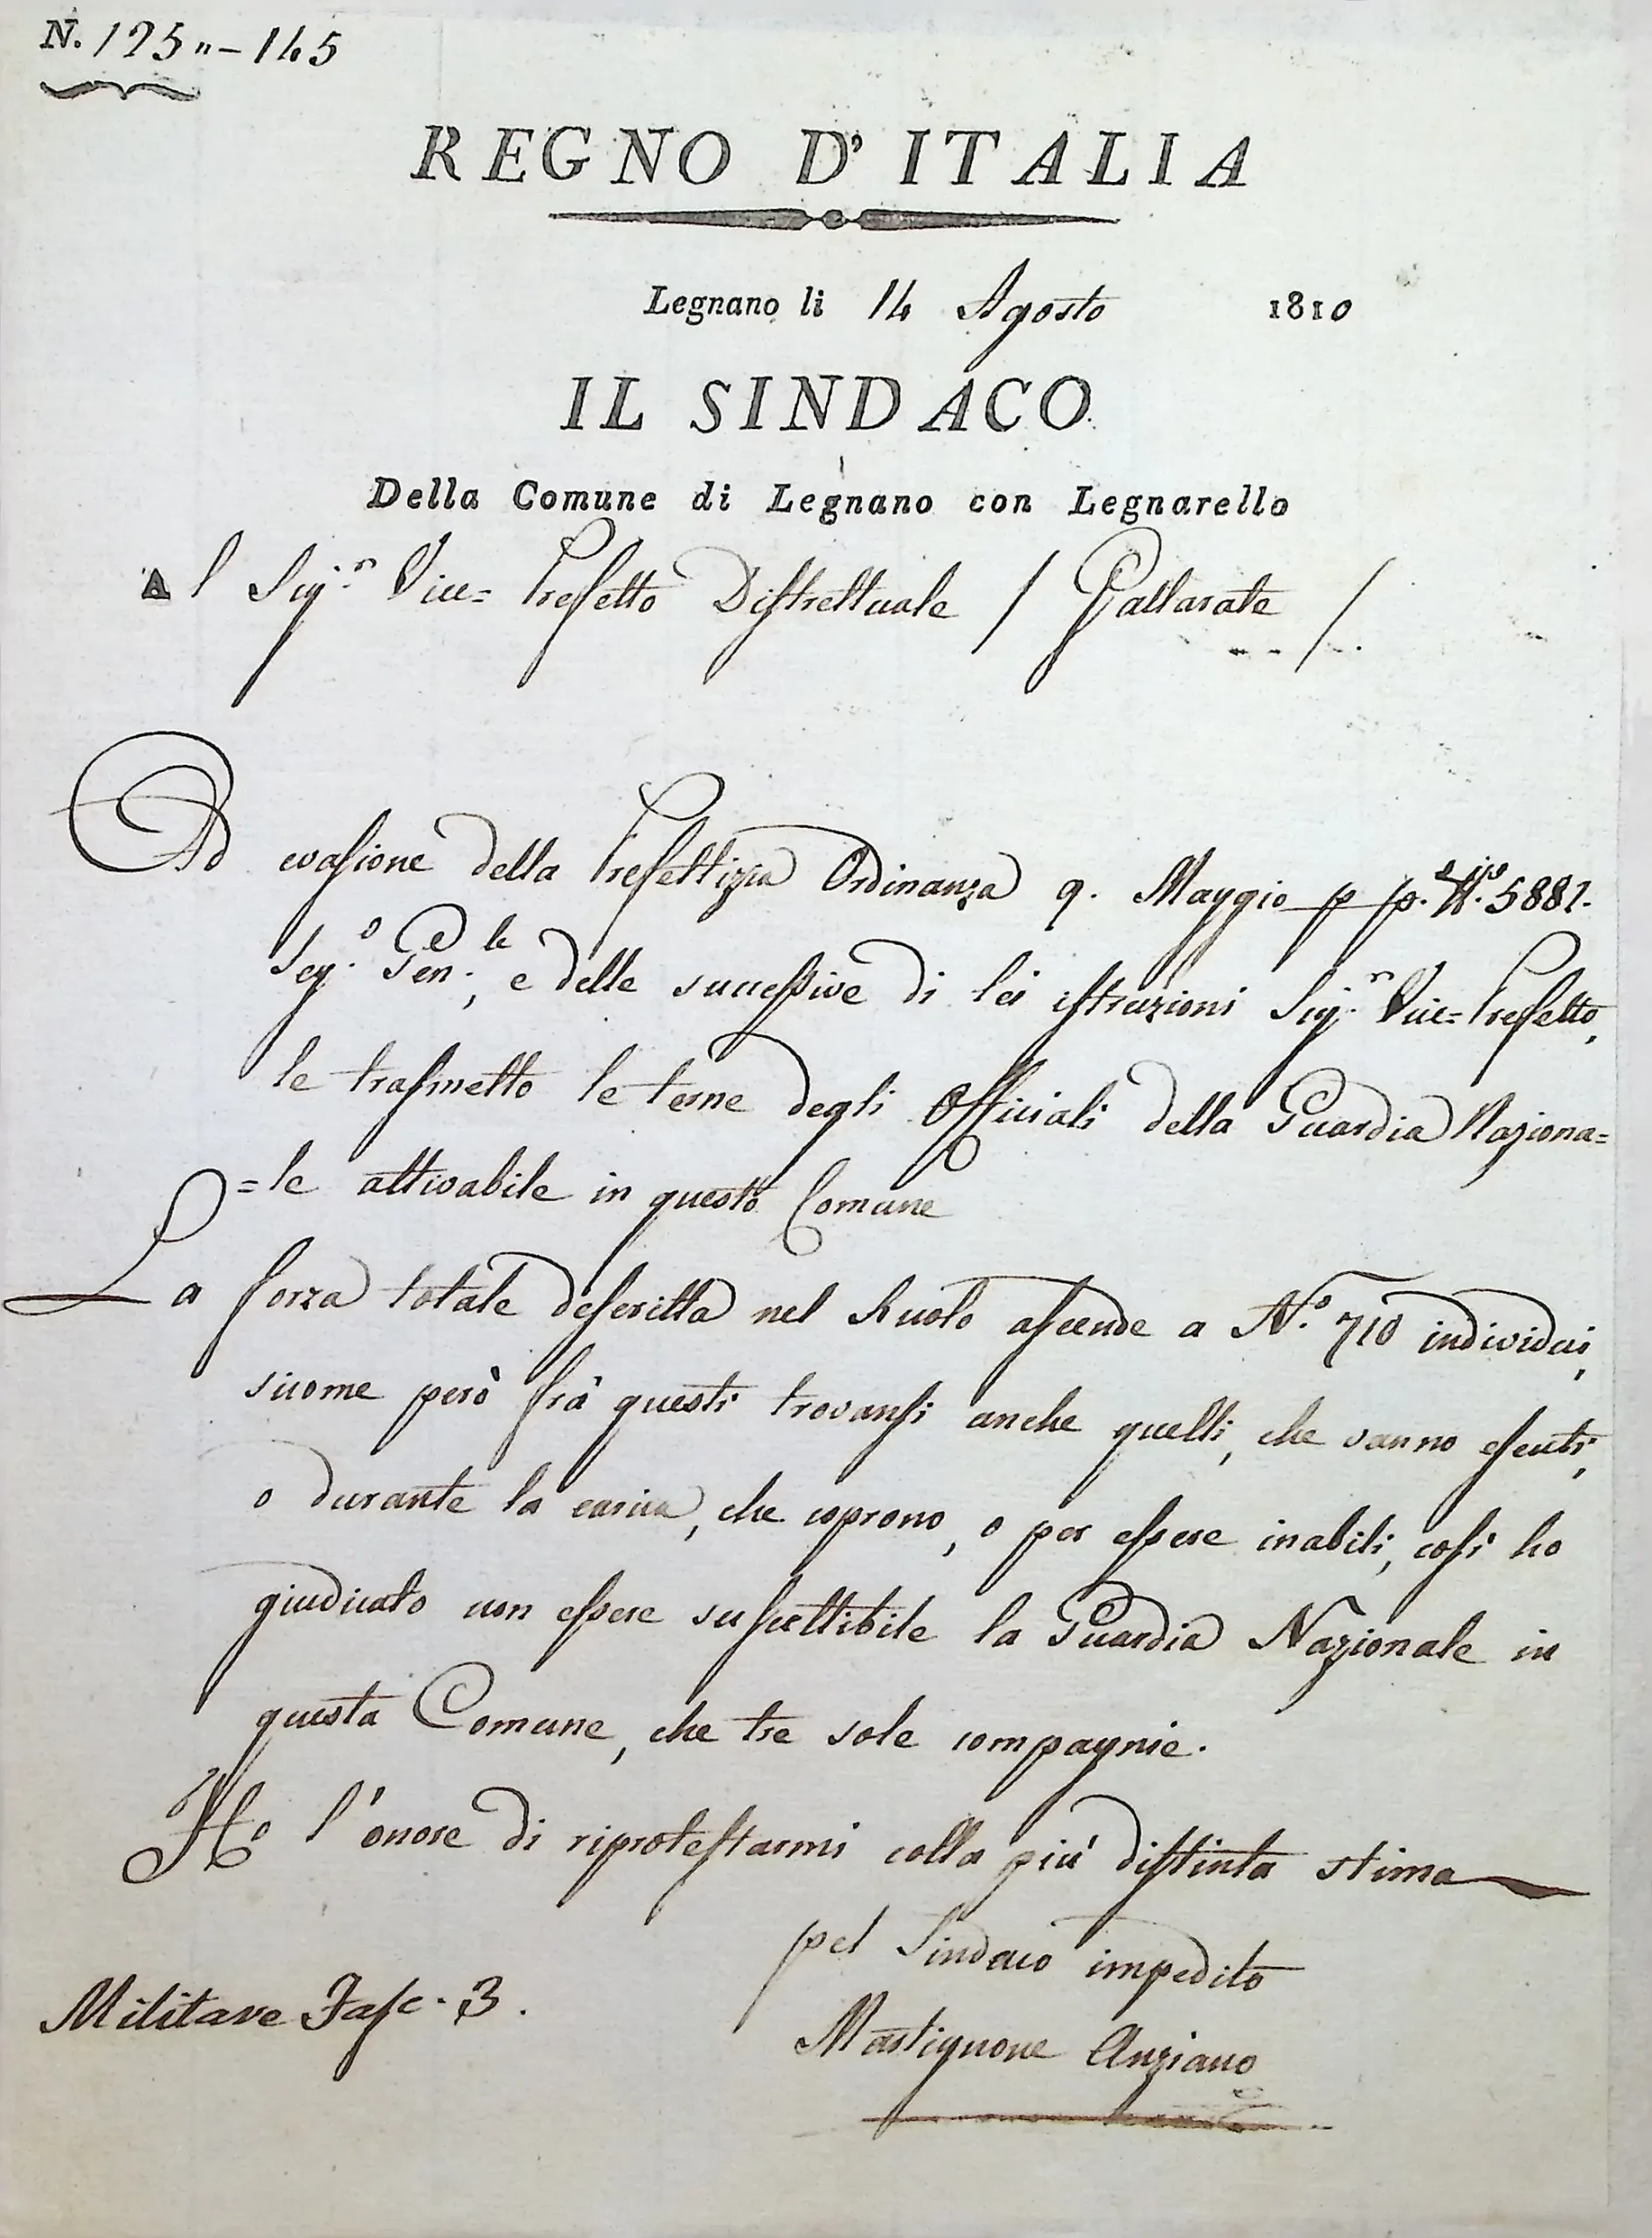 N. 125 " - 145
REGNO D'ITALIA
Legnano li 14 Agosto 1810
IL SINDACO
Della Comune di Legnano con Legnarello
Al Sig.r Vice=Prefetto Distrettuale / Gallarate /.
Ad evasione della Prefettizia Ordinanza 9. Maggio p. p. N.o 5881.
Seg.o Gen.le, e delle successive di lei istruzioni Sig.r Vice=Prefetto,
le trasmetto le terne degli Officiali della Guardia Naziona=
=le attivabile in questo Comune
La forza totale descritta nel Ruolo ascende a N.o 710 individui,
siccome però frà questi trovansi anche quelli, che vanno esenti,
o durante la carica, che coprono, o per essere inabili, così ho
giudicato non essere suscettibile la Guardia Nazionale in
questa Comune, che tre sole compagnie.
Ho l'onore di riprotestarmi colla più distinta stima
pel Sindaco impedito
Militare Fasc. 3.
Mastignone Anziano